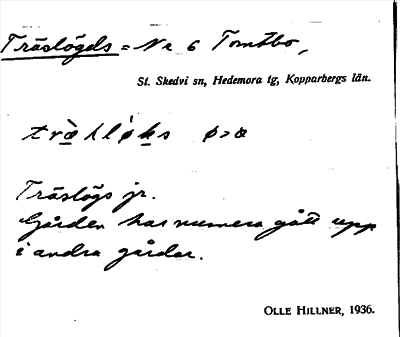 Träslögds = No 6 Tomtbo,
St. Skedvi sn, Hedemora tg, Kopparbergs län.
Träslögs jr.
Gården har numera gått upp
i andra gårdar.
OLLE HILLNER, 1936.